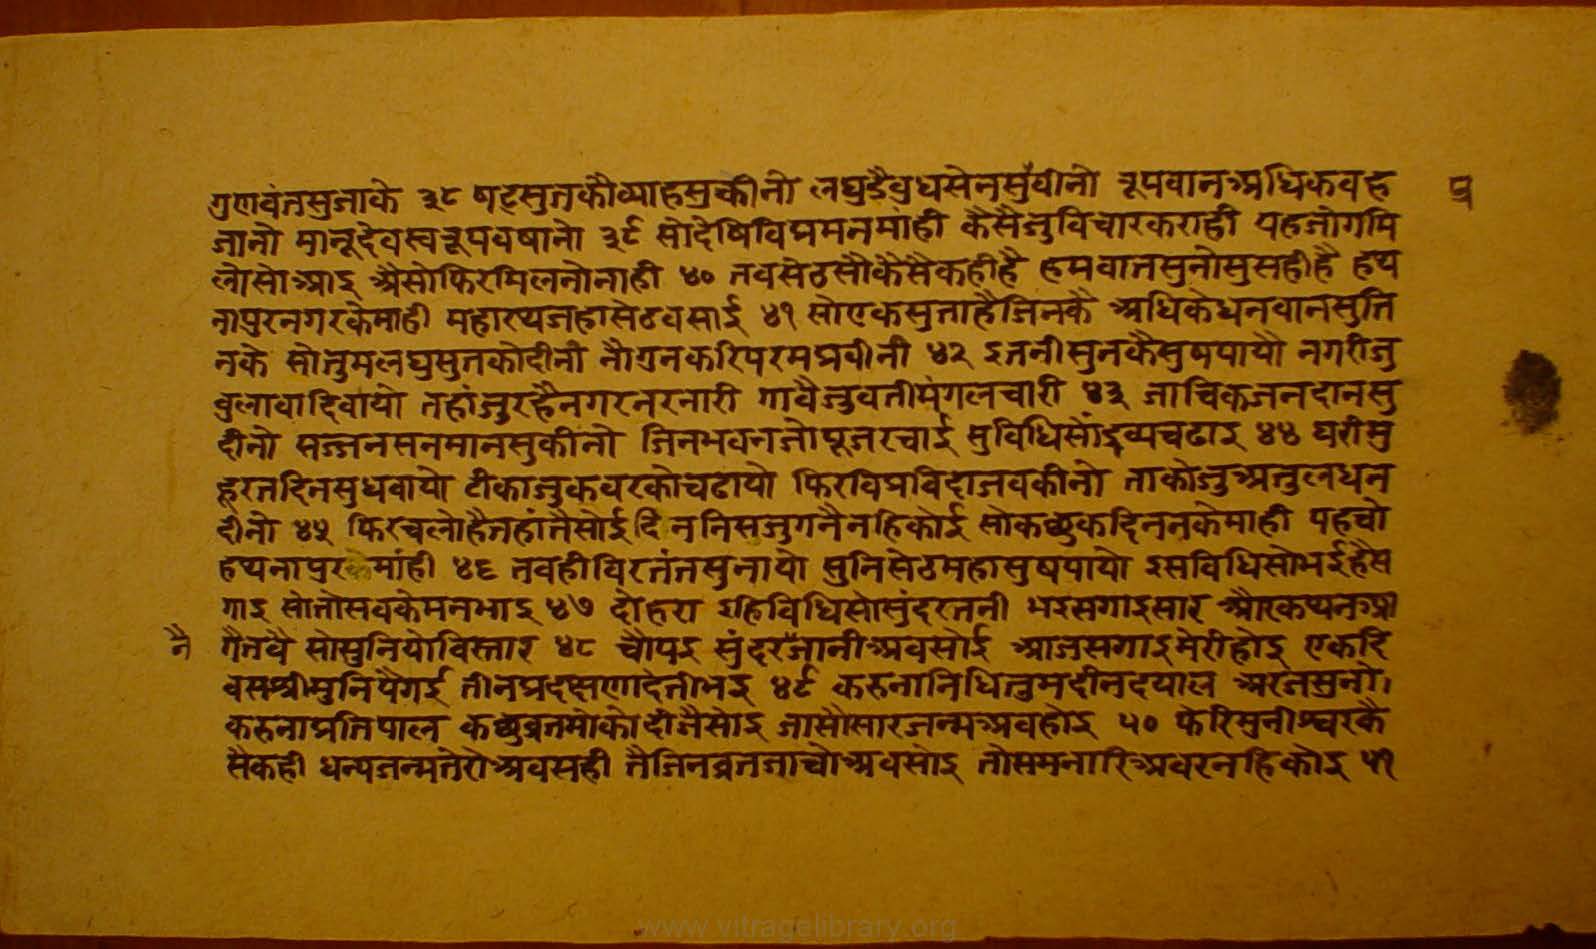 गुणवंतसुजाके ३८ षटसुतकौव्याहसुकीनो लघुहैबुधसेनसुषीनो रूपवानअधिकवह
जानो मानूदेवस्वरूपवषानो ३९ सोदेषिविप्रमनमांही कैसैजुविचारकराही यहजोगमि
लोसोआइ अैसोफिरमिलनोनाही ४० तवसेठसौकैसैकहीहै हमवातसुनोसुसहीहै हथ
नापुरनगरकेमाही महारथजहासेठवसाई ४१ सोएकसुताहैजिनकै अधिकेधनवानसुति
नके सोतुमलघुसुतकोदीनी नौगुनकरिपरमप्रवीनी ४२ इतनीसुनकैसुषपायौ नगरीजु
वुलावादिवायो तहांजुरहैनगरनरनारी गावैजुवतीमंगलचारी ४३ जाचिकजनदानसु
दीनो सज्जनसनमानसुकीनो जिनभवनजोपूजरचाई सुविधिसौंद्रव्यचढाइ ४४ घरीमु
हूरतदिनसुधवायो टीकाजुकवरकोचढायो फिरविप्रविदाजवकीनो ताकोजुअतुलधन
दीनो ४५ फिरचलोहैतहांतैसोई दिननिसजुगनैनहिकोई सोकछुकदिननकेमाही पहचो
हथनापुरकेमांही ४६ तवहीविरतंतसुनायो सुनिसेठमहासुषपायो इसविधिसोभईहैस
गाइ सोतोसवकेमनभाइ ४७ दोहरा इहिविधिसोसुंदरतनी भइसगाइसार औरकथनआ
नै
गैतवै सोसुनियोविस्तार ४८ चौपइ सुंदरजानीअवसोई आजसगाइमेरीहोइ एकदि
वसश्रीमुनिपैगई तीनप्रदक्षणादेतीभइ ४९ करुनानिधितुमदीनदयाल अरजसुनो।
करुनाप्रतिपाल कछुव्रतमोकोदीजैसोइ जासौसारजन्मअवहोइ ५० फेरिमुनीश्वरकै
सैकही धन्यजन्मतेरोअवसही तैजिनव्रतजाचोअवसोइ तोसमनारिअवरनहिकोइ ५१